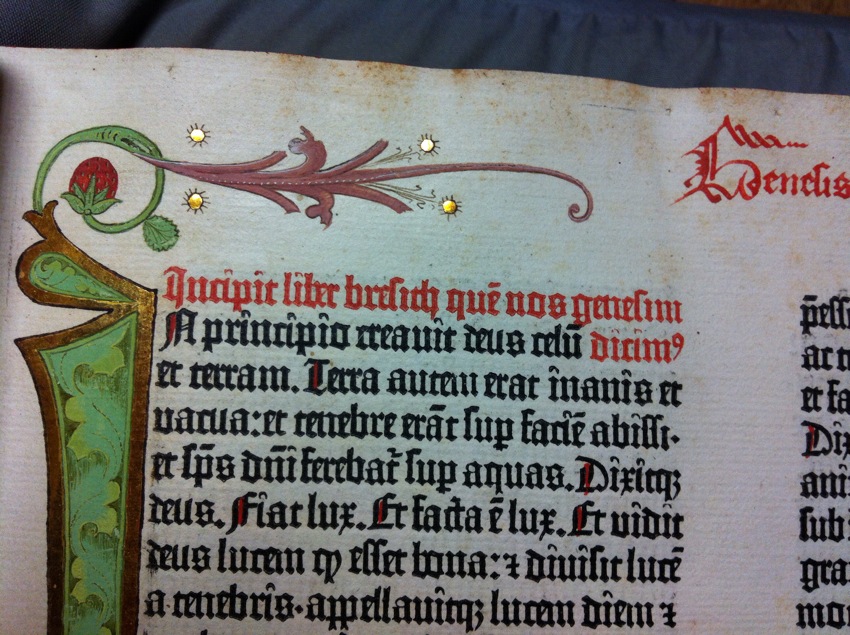 Genesis
Incipit liber bresith quē nos genesim
N principio creauit deus celū dicimꝰ
et terram. Terra autem erat inanis et
vacua: et tenebre erāt sup faciē abissi.
et sp̄s dn̄i ferebat᷑ sup aquas. Dixitqꝫ
deus. Fiat lux. Et facta ē lux. Et vidit
deus lucem ꝙ esset bona: ⁊ diuisit lucē
a tenebris. appellauitqꝫ lucem diem ⁊